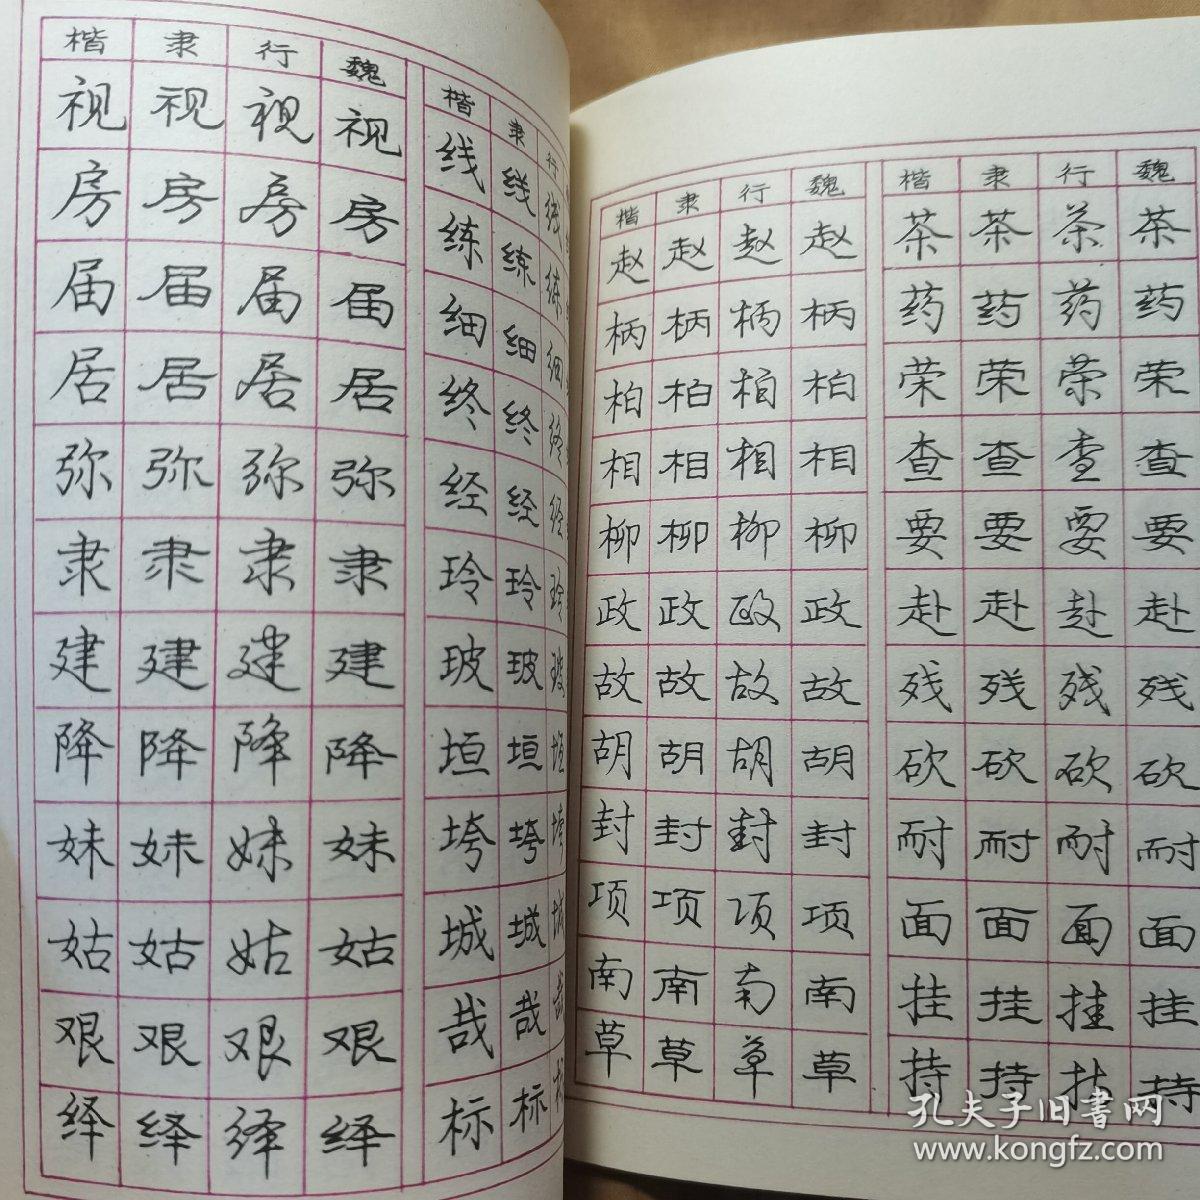 楷 隶 行 魏
视 视 视 视
房 房 房 房
届 届 届 届
居 居 居 居
弥 弥 弥 弥
隶 隶 隶 隶
建 建 建 建
降 降 降 降
妹 妹 妹 妹
姑 姑 姑 姑
艰 艰 艰 艰
绎 绎 绎 绎
楷 隶 行
线 线 线
练 练 练
细 细 细
终 终 终
经 经 经
玲 玲 玲
玻 玻 玻
垣 垣 垣
垮 垮 垮
城 城 城
哉 哉 哉
标 标
楷 隶 行 魏
赵 赵 赵 赵
柄 柄 柄 柄
柏 柏 柏 柏
相 相 相 相
柳 柳 柳 柳
政 政 政 政
故 故 故 故
胡 胡 胡 胡
封 封 封 封
项 项 项 项
南 南 南 南
草 草 草 草
楷 隶 行 魏
茶 茶 茶 茶
药 药 药 药
荣 荣 荣 荣
查 查 查 查
要 要 要 要
赴 赴 赴 赴
残 残 残 残
砍 砍 砍 砍
耐 耐 耐 耐
面 面 面 面
挂 挂 挂 挂
持 持 持 持
孔夫子旧书网
www.kongfz.com